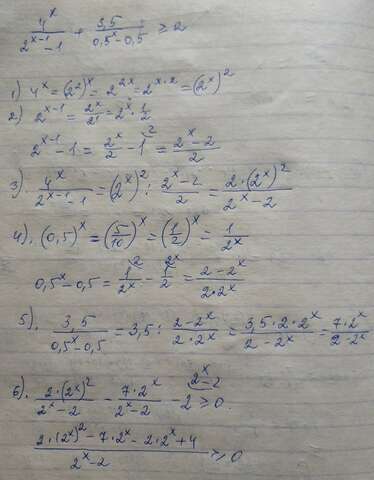 4^x/(2^(x-1) - 1) + 3,5/(0,5^x - 0,5) ≥ 2
1) 4^x = (2^2)^x = 2^(2x) = 2^(x·2) = (2^x)^2
2) 2^(x-1) = 2^x/2^1 = 2^x · 1/2
2^(x-1) - 1 = 2^x/2 - 1^(\2) = (2^x - 2)/2
3). 4^x/(2^(x-1) - 1) = (2^x)^2 : (2^x - 2)/2 = 2·(2^x)^2/(2^x - 2)
4). (0,5)^x = (5/10)^x = (1/2)^x = 1/2^x
0,5^x - 0,5 = 1^(\2)/2^x - 1^(\2^x)/2 = (2 - 2^x)/(2·2^x)
5). 3,5/(0,5^x - 0,5) = 3,5 : (2 - 2^x)/(2·2^x) = 3,5·2·2^x/(2 - 2^x) = 7·2^x/(2 - 2^x)
6). 2·(2^x)^2/(2^x - 2) - 7·2^x/(2^x - 2) - 2^(\2^x - 2) ≥ 0.
(2·(2^x)^2 - 7·2^x - 2·2^x + 4)/(2^x - 2) ≥ 0